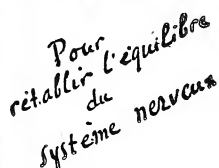 Pour
rétablir l'équilibre
du
système nerveux